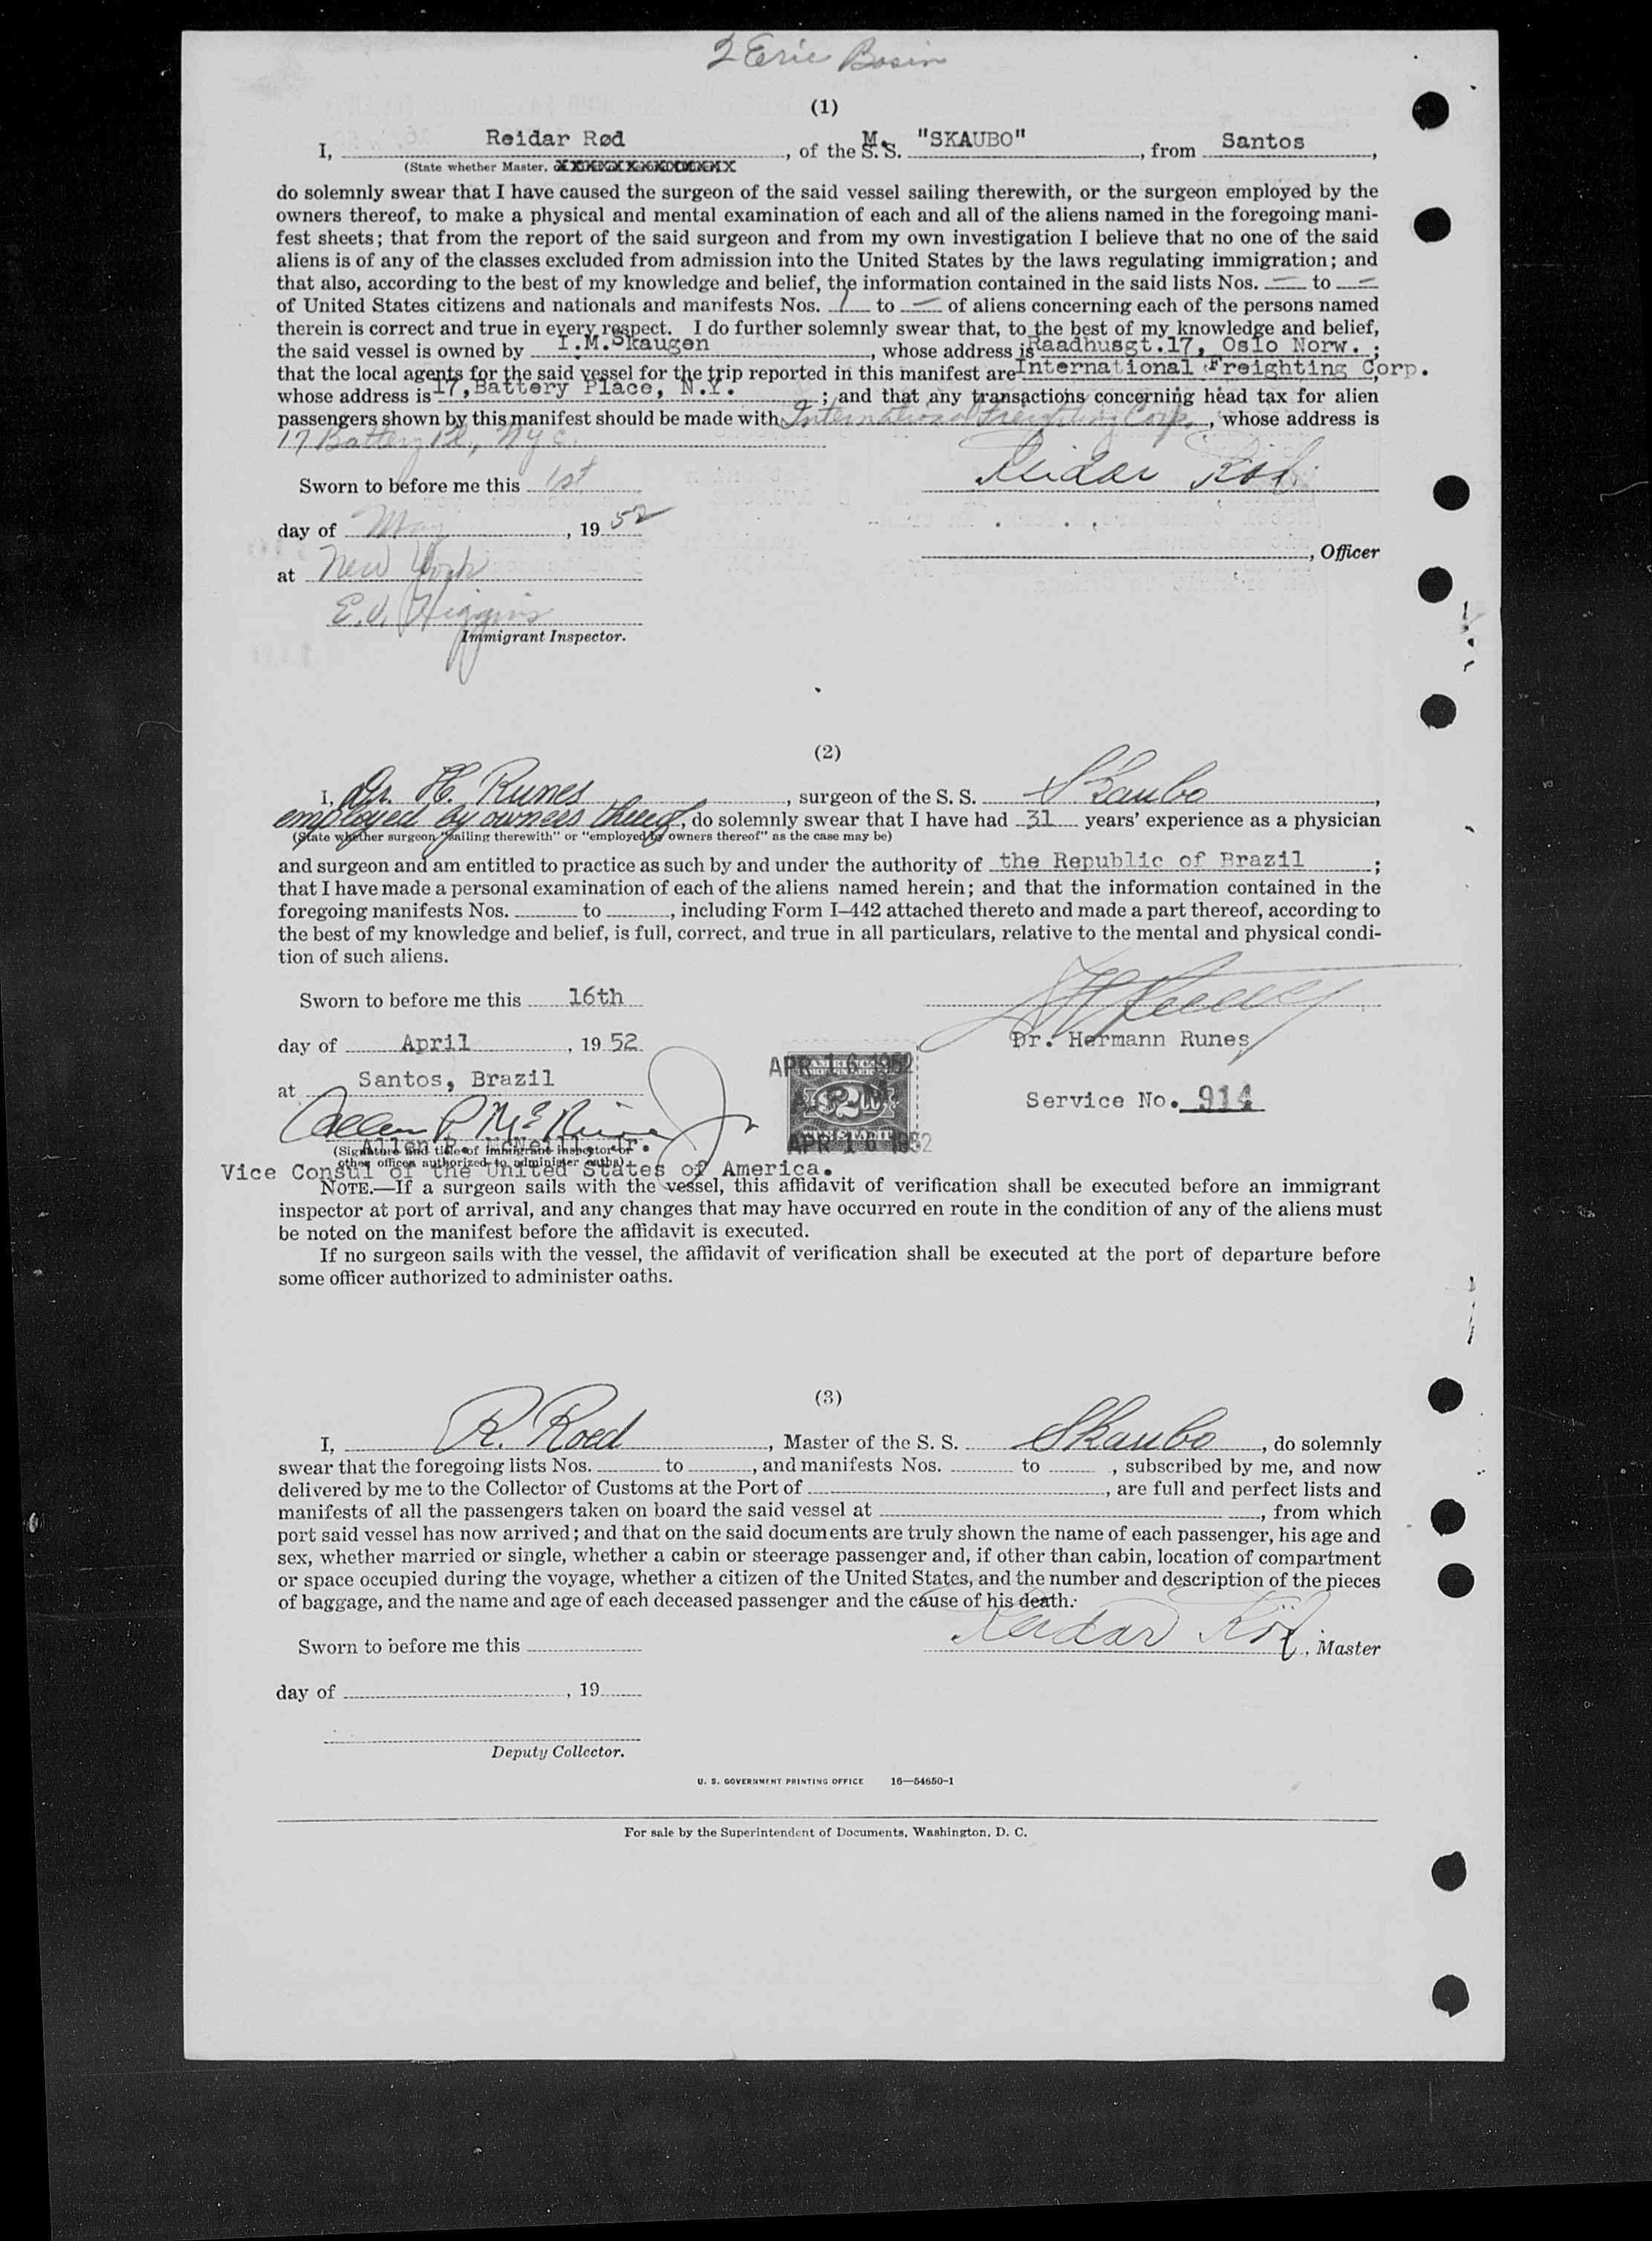 2 Erie Basin
(1)
I, Reidar Rød, of the M. S.S. "SKAUBO", from Santos,
(State whether Master,
do solemnly swear that I have caused the surgeon of the said vessel sailing therewith, or the surgeon employed by the
owners thereof, to make a physical and mental examination of each and all of the aliens named in the foregoing mani-
fest sheets; that from the report of the said surgeon and from my own investigation I believe that no one of the said
aliens is of any of the classes excluded from admission into the United States by the laws regulating immigration; and
that also, according to the best of my knowledge and belief, the information contained in the said lists Nos. — to —
of United States citizens and nationals and manifests Nos. 1 to — of aliens concerning each of the persons named
therein is correct and true in every respect. I do further solemnly swear that, to the best of my knowledge and belief,
the said vessel is owned by I.M.Skaugen, whose address is Raadhusgt.17, Oslo Norw. ;
that the local agents for the said vessel for the trip reported in this manifest are International Freighting Corp.
whose address is 17,Battery Place, N.Y. ; and that any transactions concerning head tax for alien
passengers shown by this manifest should be made with International Freighting Corp., whose address is
17 Battery Pl., N.Y.C.
Sworn to before me this 1st
Reidar Rød
day of May, 1952
, Officer
at New York
E. V. Higgins
Immigrant Inspector.
(2)
I, Dr. H. Runes, surgeon of the S. S. Skaubo,
employed by owners thereof, do solemnly swear that I have had 31 years' experience as a physician
(State whether surgeon "sailing therewith" or "employed by owners thereof" as the case may be)
and surgeon and am entitled to practice as such by and under the authority of the Republic of Brazil ;
that I have made a personal examination of each of the aliens named herein; and that the information contained in the
foregoing manifests Nos. to , including Form I–442 attached thereto and made a part thereof, according to
the best of my knowledge and belief, is full, correct, and true in all particulars, relative to the mental and physical condi-
tion of such aliens.
Sworn to before me this 16th
H Runes
day of April, 1952
Dr. Hermann Runes
APR 16 1952
at Santos, Brazil
$2.00
Service No. 914
Allen R. McNeill Jr
APR 16 1952
Allen R. McNeill, Jr.
(Signature and title of immigrant inspector or
other officer authorized to administer oaths)
Vice Consul of the United States of America.
NOTE.—If a surgeon sails with the vessel, this affidavit of verification shall be executed before an immigrant
inspector at port of arrival, and any changes that may have occurred en route in the condition of any of the aliens must
be noted on the manifest before the affidavit is executed.
If no surgeon sails with the vessel, the affidavit of verification shall be executed at the port of departure before
some officer authorized to administer oaths.
(3)
I, R. Roed, Master of the S. S. Skaubo, do solemnly
swear that the foregoing lists Nos. to , and manifests Nos. to , subscribed by me, and now
delivered by me to the Collector of Customs at the Port of , are full and perfect lists and
manifests of all the passengers taken on board the said vessel at , from which
port said vessel has now arrived; and that on the said documents are truly shown the name of each passenger, his age and
sex, whether married or single, whether a cabin or steerage passenger and, if other than cabin, location of compartment
or space occupied during the voyage, whether a citizen of the United States, and the number and description of the pieces
of baggage, and the name and age of each deceased passenger and the cause of his death.
Sworn to before me this
Reidar Rød, Master
day of , 19
Deputy Collector.
U. S. GOVERNMENT PRINTING OFFICE 16—54650-1
For sale by the Superintendent of Documents, Washington, D. C.